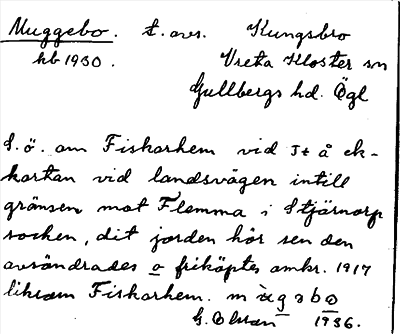 Muggebo. t. avs. Kungsbro
hb 1930. Vreta Kloster sn
Gullbergs hd. Ögl
S. ö. om Fiskarhem vid It å ek-
kartan vid landsvägen intill
gränsen mot Flemma i Stjärnorp
socken, dit jorden hör sen den
avsöndrades o friköptes omkr. 1917
liksom Fiskarhem.
G. Olson 1936.